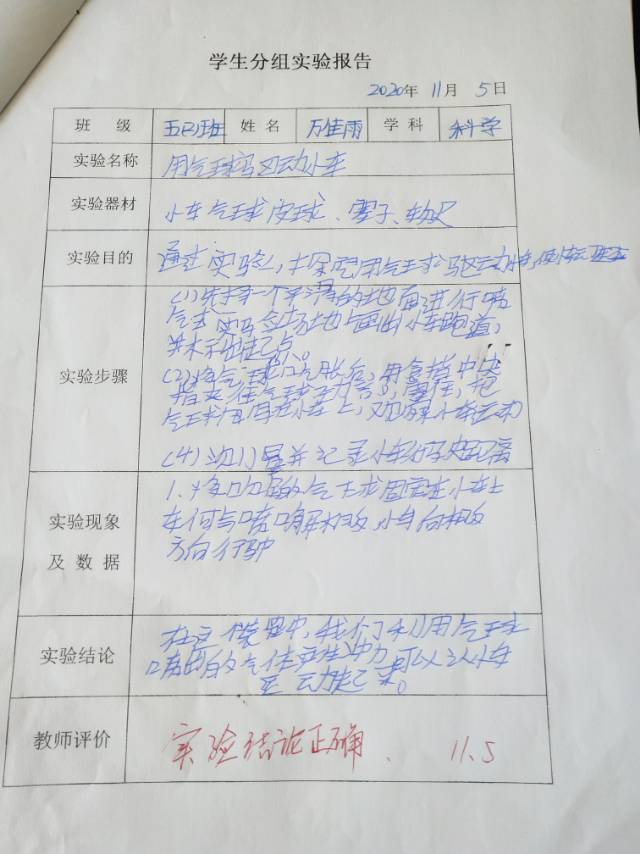 学生分组实验报告
2020年 11月 5日
班级 五(3)班 姓名 万佳雨 学科 科学
实验名称 用气球驱动小车
实验器材 小车 气球 皮球、 软尺
实验目的 通过实验,探究用气球驱动小车
实验步骤
(1)先择一个平滑的地面进行喷
气式实验在场地上画出小车跑道,
并标出起点。
(2)将气球吹胀后,用食指中
指夹住气球
气球 小车上,观察小车运动
(4)测量并记录小车行驶的距离
实验现象
及数据
1.将 的气球固定在小车上
小车向相
方向行驶
实验结论
在这 装置中,我们利用气球
喷出的气体产生 力可以让小车
运动起来。
教师评价 实验结论正确. 11.5